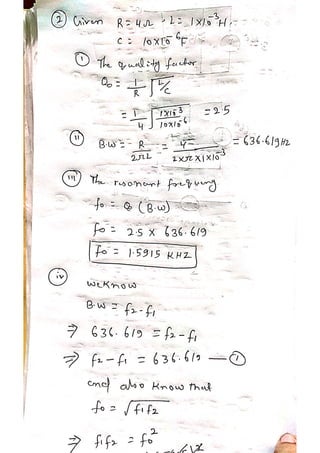 ② Given R = 4Ω , L = 1x10⁻³ H.
C = 10x10⁻⁶ F
① The quality factor
Q₀ = 1/R √(L/C)
= 1/4 √(1x10⁻³/10x10⁻⁶) = 2.5
ⅱ B.W = R/2πL = 4/(2xπx1x10⁻³) = 636.619 HZ
ⅲ The resonant frequency
f₀ = Q (B.W)
f₀ = 2.5 x 636.619
f₀ = 1.5915 KHZ
ⅳ we know
B.W = f₂-f₁
⇒ 636.619 = f₂-f₁
⇒ f₂-f₁ = 636.619 — ①
and also know that
f₀ = √f₁f₂
⇒ f₁f₂ = f₀²